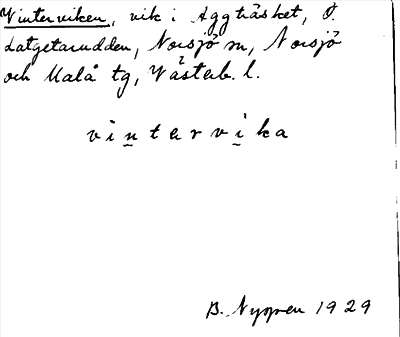 Vinterviken, vik i Aggträsket, Ö.
Latgetarudden, Norsjö sn, Norsjö
och Malå tg, Västerb. l.
vintarvika
B. Nyman 1929